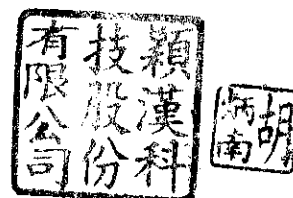 穎漢科
技股份
有限公司
胡
炳南